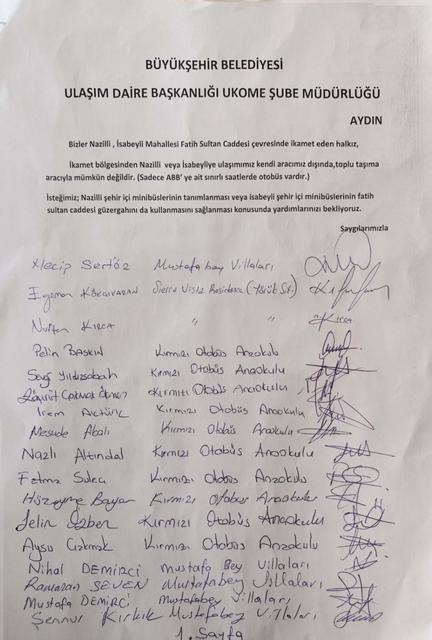 BÜYÜKŞEHİR BELEDİYESİ
ULAŞIM DAİRE BAŞKANLIĞI UKOME ŞUBE MÜDÜRLÜĞÜ
AYDIN
Bizler Nazilli , İsabeyli Mahallesi Fatih Sultan Caddesi çevresinde ikamet eden halkız,
İkamet bölgesinden Nazilli veya İsabeyliye ulaşımımız kendi aracımız dışında,toplu taşıma
aracıyla mümkün değildir. (Sadece ABB' ye ait sınırlı saatlerde otobüs vardır.)
İsteğimiz; Nazilli şehir içi minibüslerinin tanımlanması veya isabeyli şehir içi minibüslerinin fatih
sultan caddesi güzergahını da kullanmasını sağlanması konusunda yardımlarınızı bekliyoruz.
Saygılarımızla
Necip Sertöz Mustafa bey Villaları
Sierra Vista Residence
Nurten KIRCA " " N. KIRCA
Pelin BASKIN Kırmızı Otobüs Anaokulu
Kırmızı Otobüs Anaokulu
Kırmızı Otobüs Anaokulu
İrem AKTÜRK Kırmızı Otobüs Anaokulu
Mesude Abalı Kırmızı Otobüs Anaokulu
Nazlı Altındal Kırmızı Otobüs Anaokulu
Fatma Kırmızı Otobüs Anaokulu
Kırmızı Otobüs Anaokulu
Selin Özben Kırmızı Otobüs Anaokulu
Aysu Kırmızı Otobüs Anaokulu
Nihal DEMİRCİ Mustafa Bey Villaları
Ramazan SEVEN Mustafabey Villaları
Mustafa DEMİRCİ Mustafabey Villaları,
Şennur Kırkık Mustafabey Villaları,
1. Sayfa